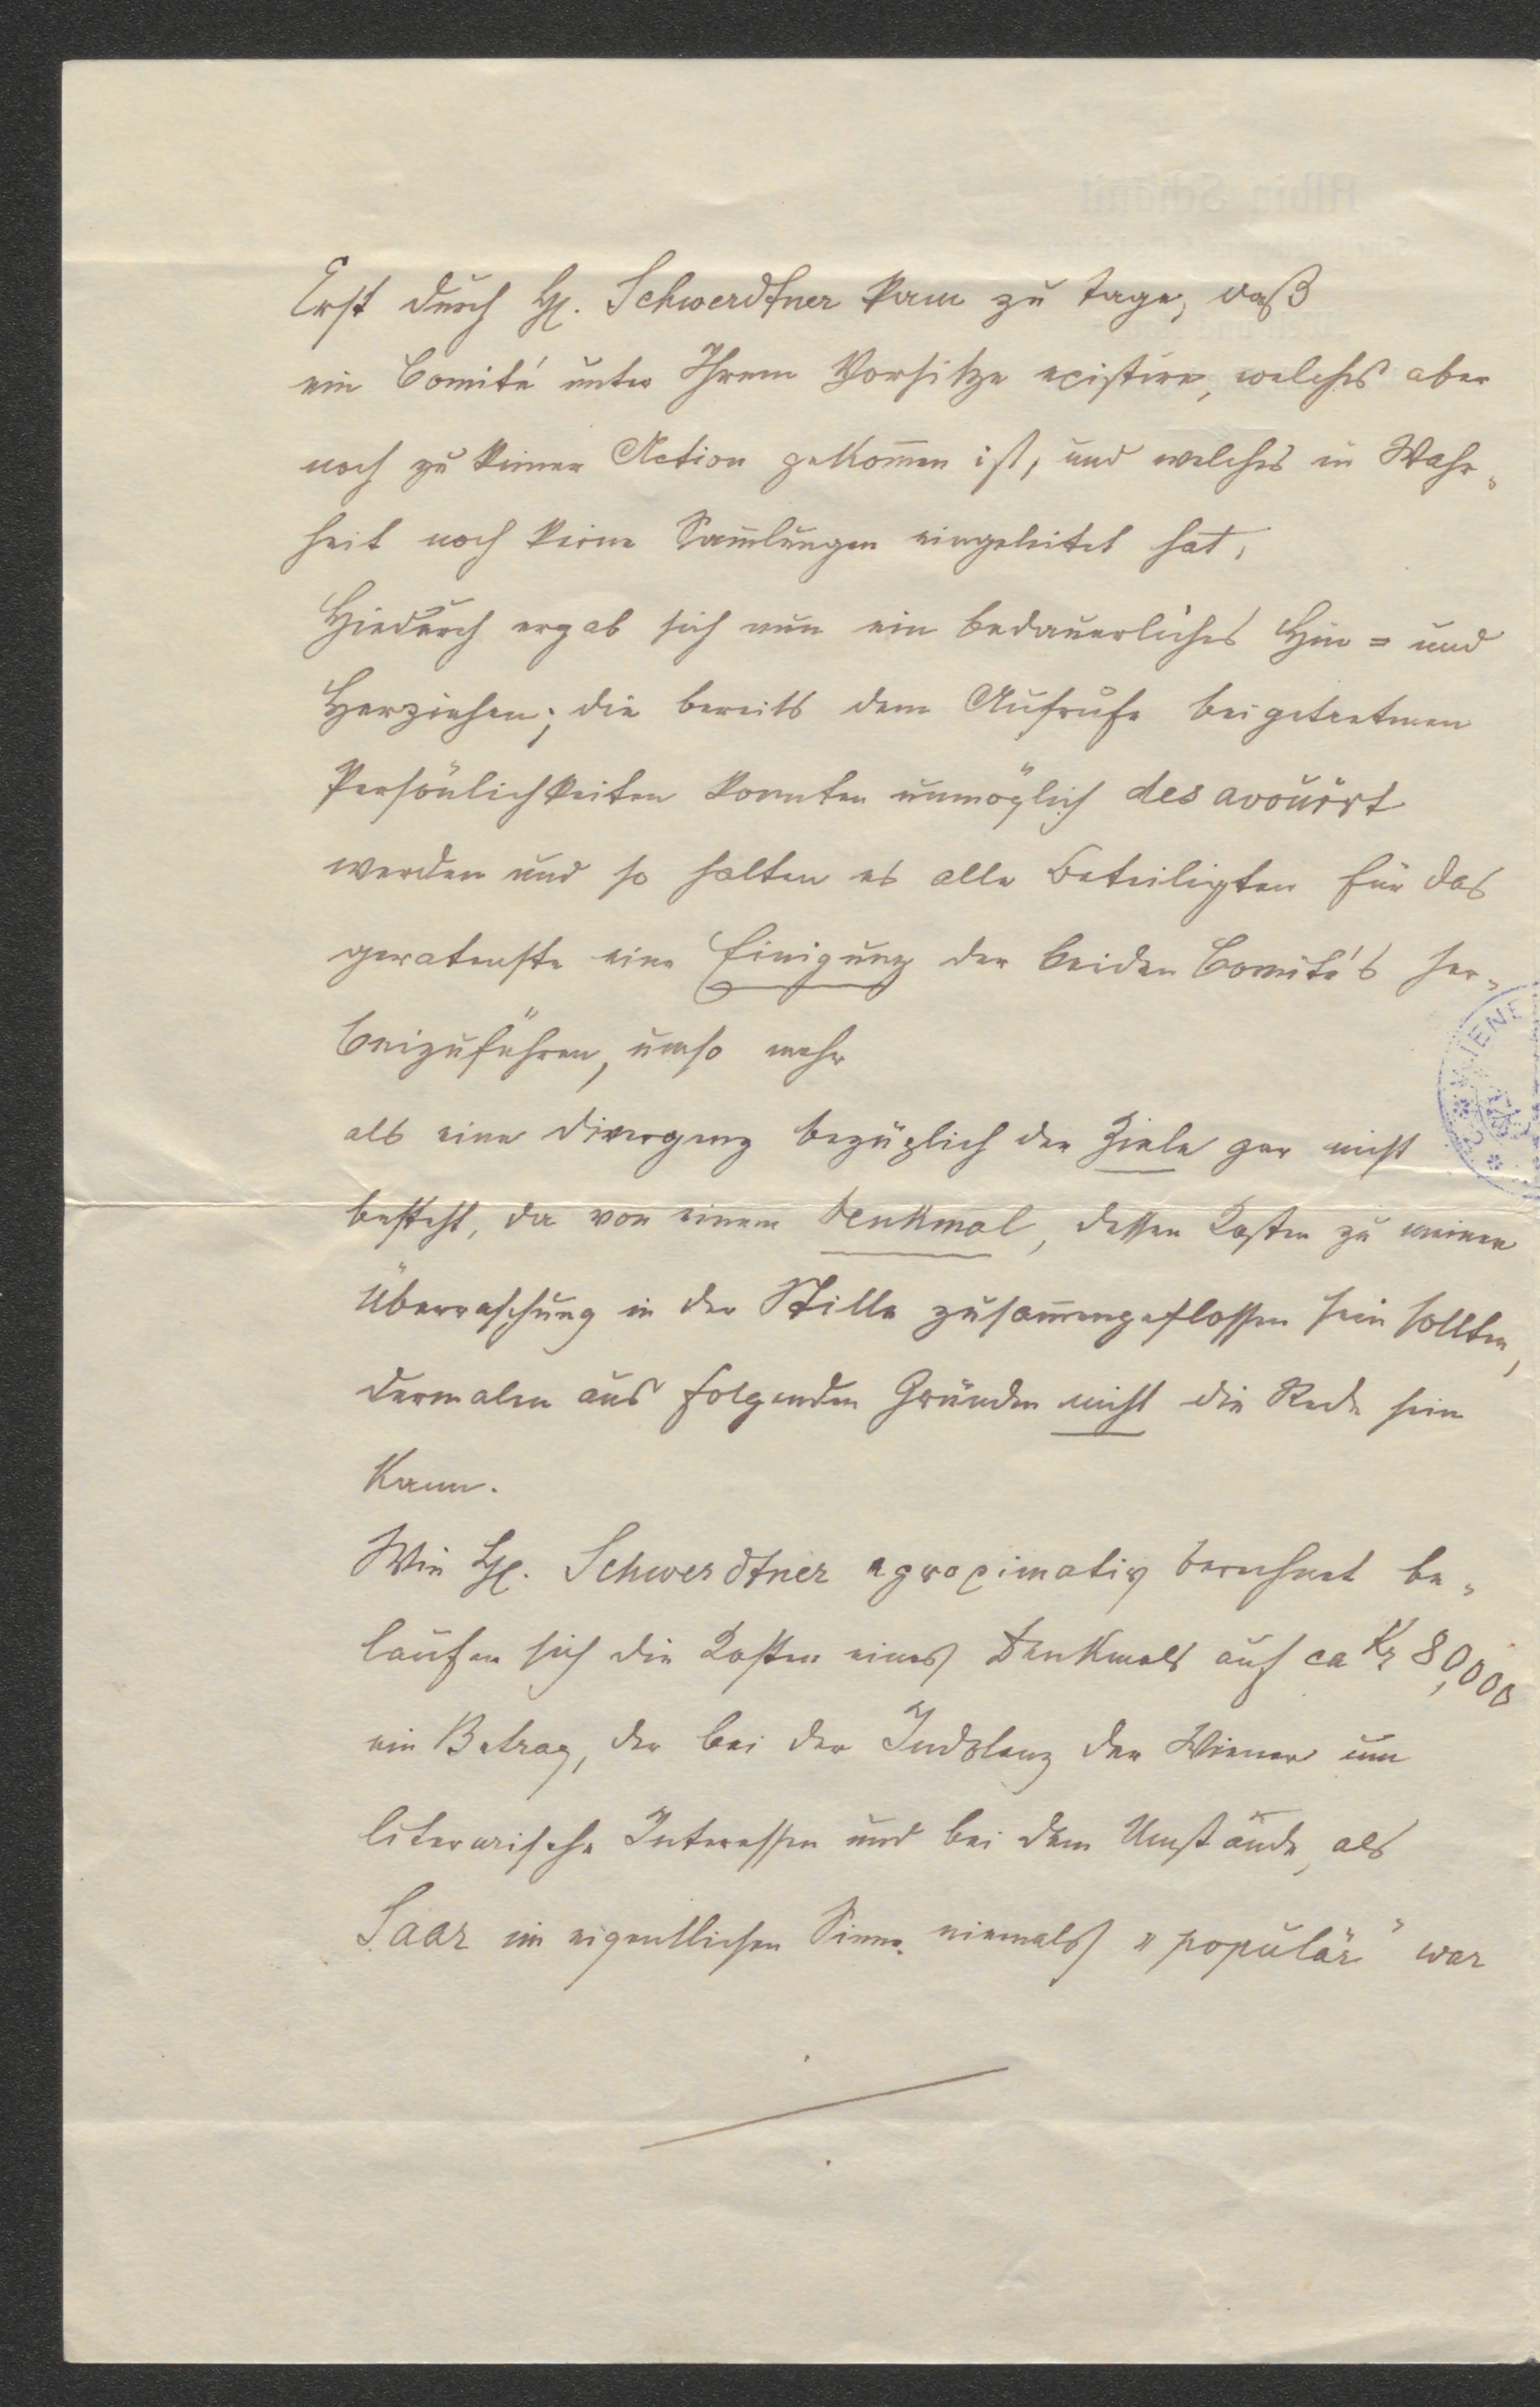 Erst durch H. Schwerdtner kam zu tage, daß
ein Comité unter Ihrem Vorsitze existire, welches aber
noch zu keiner Action gekom̄en ist, und welches in Wahr„
heit noch keine Sam̄lungen eingeleitet hat,
Hiedurch ergab sich nun ein bedauerliches Hin = und
Herziehen; die bereits dem Aufrufe beigetretenen
Persönlichkeiten konnten unmöglich desavouirt
werden und so halten es alle Beteiligten für das
geratenste eine Einigung der beiden Comité's her„
beizuführen, umso mehr
als eine Divergenz bezüglich der Ziele gar nicht
besteht, da von einem Denkmal, dessen Kosten zu meiner
Überraschung in der Stille zusam̄engeflossen sein sollten,
dermalen aus folgenden Gründen nicht die Rede sein
kann.
Wie H. Schwerdtner aproximativ berechnet be„
laufen sich die Kosten eines Denkmals auf ca Kr 80,000
ein Betrag, der bei der Indolenz der Wiener um
literarische Interessen und bei dem Umstande, als
Saar im eigentlichen Sinne niemals „populär“ war
WIENE